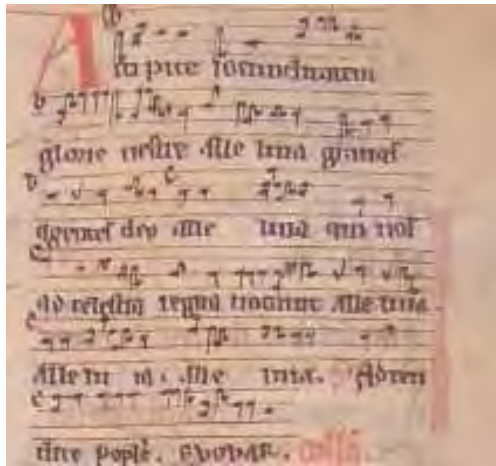 Accipite iocunditatem
glorie vestre alle luia gratias
agentes deo alle luia qui vos
ad celestia regna vocavit alle luia.
Alle lu ia. alle luia. Adten
dite pople. EVOVAE.